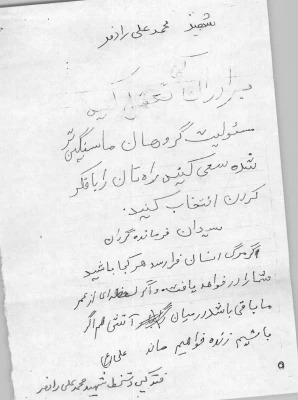 شهید محمد علی رادفر
کمی
برادران تعقل کنید
مسئولیت گروهان ما سنگین تر
شده سعی کنید راهتان را با فکر
کردن انتخاب کنید.
سیدان فرمانده گردان
اگر مرگ انسان فرا رسد هر کجا باشید
شما را در خواهد یافت و اگر لحظه ای از عمر
ما باقی باشد در میان آتش هم اگر
باشیم زنده خواهیم ماند علی (ع)
شهید محمد علی رادفر